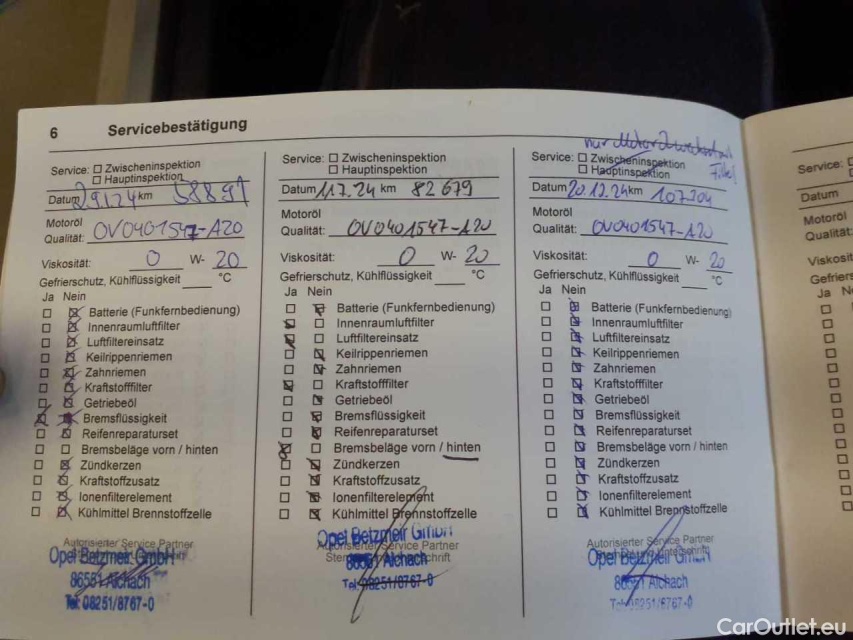 6 Servicebestätigung
Service: Zwischeninspektion
Hauptinspektion
Datum 29.1.24 km 58891
Motoröl
Qualität: OV0401547-A20
Viskosität: 0 W- 20
Gefrierschutz, Kühlflüssigkeit °C
Ja Nein
Batterie (Funkfernbedienung)
Innenraumluftfilter
Luftfiltereinsatz
Keilrippenriemen
Zahnriemen
Kraftstofffilter
Getriebeöl
Bremsflüssigkeit
Reifenreparaturset
Bremsbeläge vorn / hinten
Zündkerzen
Kraftstoffzusatz
Ionenfilterelement
Kühlmittel Brennstoffzelle
Autorisierter Service Partner
Opel Betzmeir GmbH
86551 Aichach
Tel: 08251/8767-0
Service: Zwischeninspektion
Hauptinspektion
Datum 11.7.24 km 82679
Motoröl
Qualität: OV0401547-A20
Viskosität: 0 W- 20
Gefrierschutz, Kühlflüssigkeit °C
Ja Nein
Batterie (Funkfernbedienung)
Innenraumluftfilter
Luftfiltereinsatz
Keilrippenriemen
Zahnriemen
Kraftstofffilter
Getriebeöl
Bremsflüssigkeit
Reifenreparaturset
Bremsbeläge vorn / hinten
Zündkerzen
Kraftstoffzusatz
Ionenfilterelement
Kühlmittel Brennstoffzelle
Opel Betzmeir GmbH
Autorisierter Service Partner
86551 Aichach
Tel. 08251/8767-0
nur
Service: Zwischeninspektion
Hauptinspektion
Datum 20.12.24 km 107204
Motoröl
Qualität: OV0401547-A20
Viskosität: 0 W- 20
Gefrierschutz, Kühlflüssigkeit °C
Ja Nein
Batterie (Funkfernbedienung)
Innenraumluftfilter
Luftfiltereinsatz
Keilrippenriemen
Zahnriemen
Kraftstofffilter
Getriebeöl
Bremsflüssigkeit
Reifenreparaturset
Bremsbeläge vorn / hinten
Zündkerzen
Kraftstoffzusatz
Ionenfilterelement
Kühlmittel Brennstoffzelle
Autorisierter Service Partner
Opel Betzmeir GmbH
86551 Aichach
Tel. 08251/8767-0
Service:
Datum
Motoröl
Qualität:
Ja
CarOutlet.eu